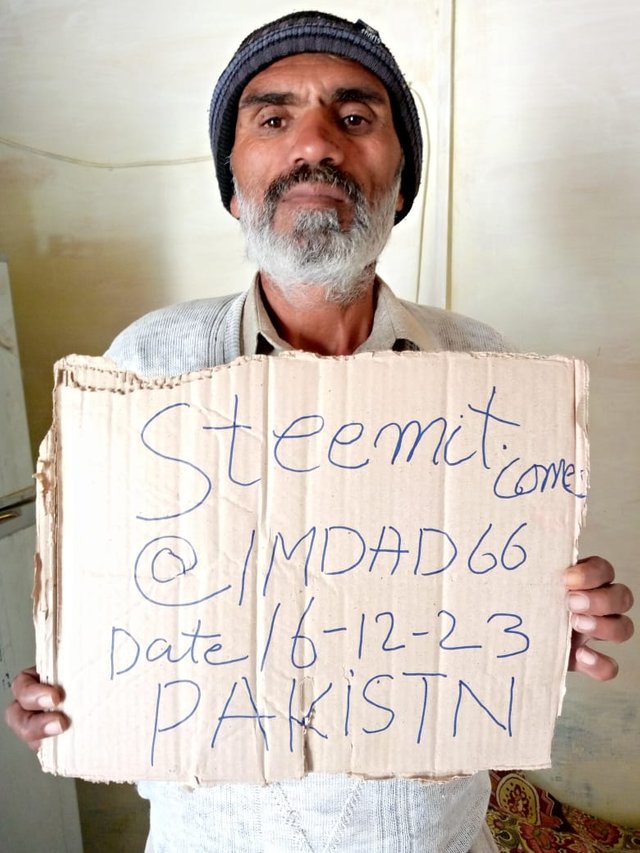 Steemit.
come
@IMDAD66
Date 16-12-23
PAKiSTN